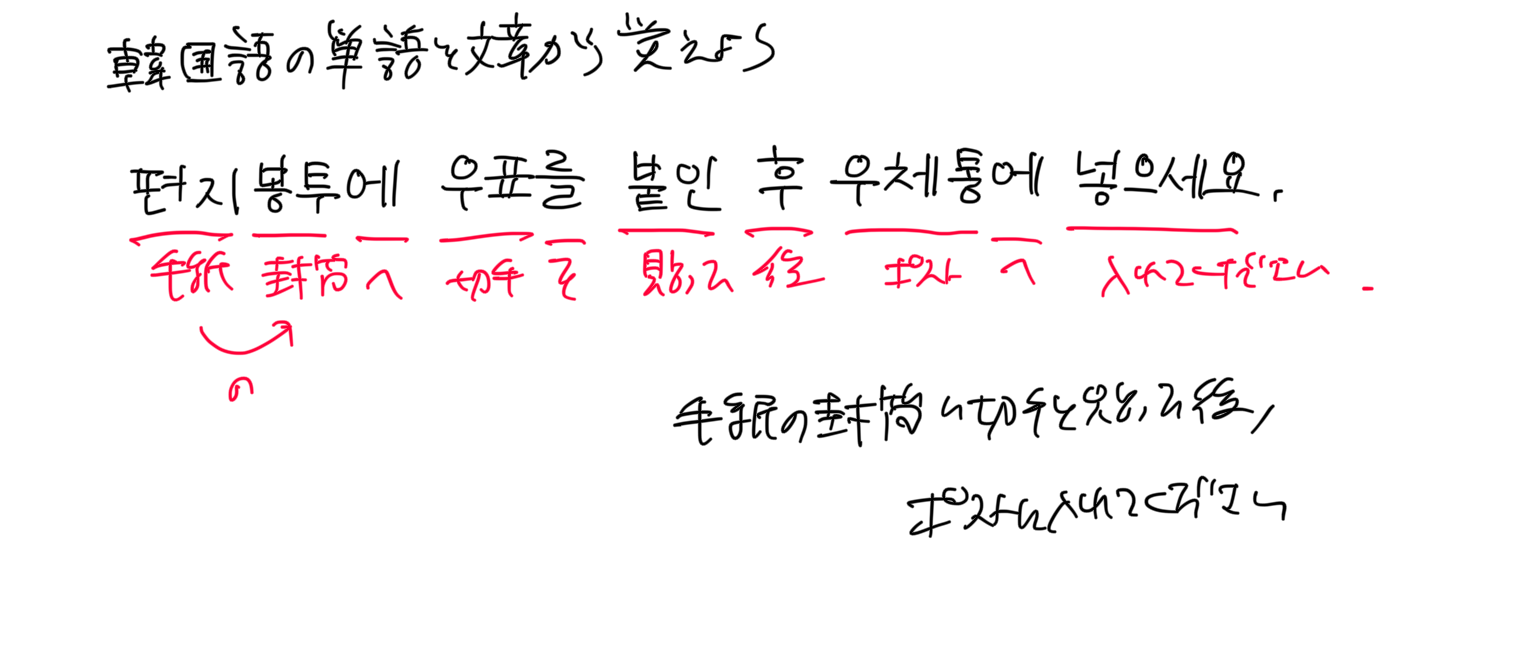 韓国語の単語を文章から覚えよう
편지봉투에 우표를 붙인 후 우체통에 넣으세요.
手紙 封筒 へ 切手 を 貼った 後 ポスト へ 入れてください.
の
手紙の封筒に切手を貼った後,
ポストに入れてください